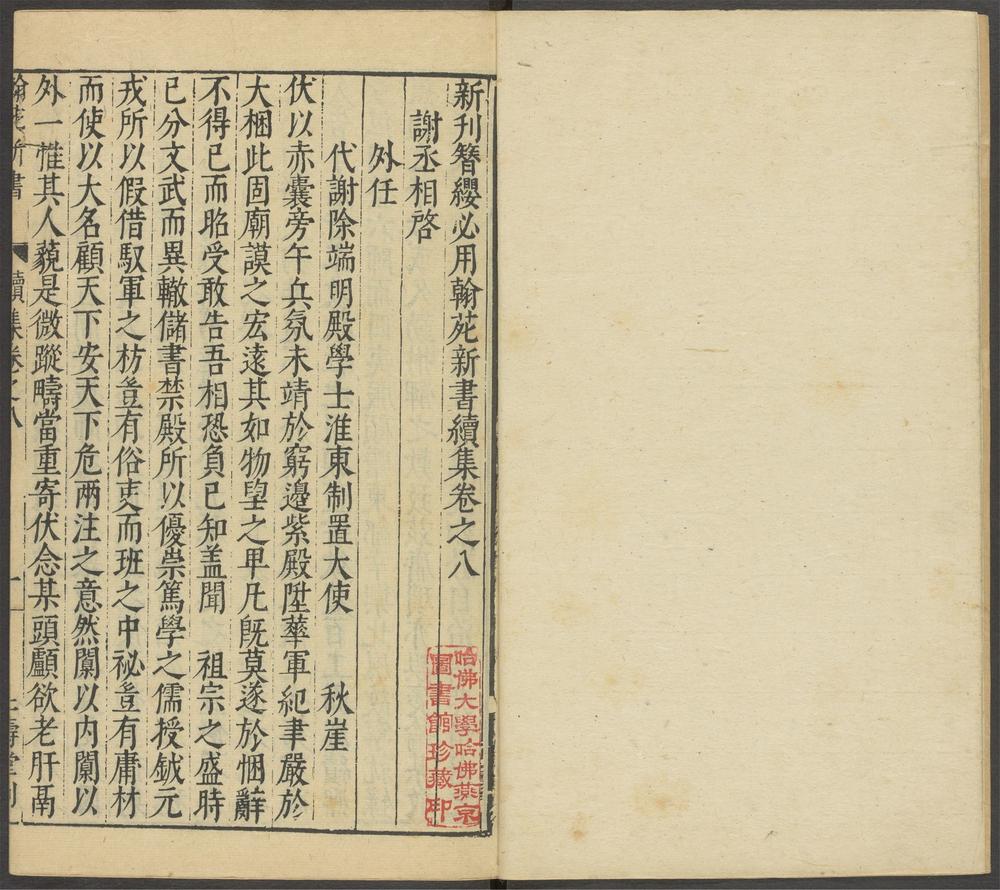 新刊簪纓必用翰苑新書續集卷之八
謝丞相啓
外任
代謝除端明殿學士淮東制置大使 秋崖
伏以赤囊旁午兵氛未靖於窮邊紫殿陞華軍紀聿嚴於
大梱此固廟謨之宏遠其如物望之甲凡旣莫遂於悃辭
不得已而昭受敢告吾相恐負已知盖聞 祖宗之盛時
已分文武而異轍儲書禁殿所以優崇篤學之儒授鉞元
戎所以假借馭軍之枋豈有俗吏而班之中祕豈有庸材
而使以大名顧天下安天下危兩注之意然閫以内閫以
外一惟其人藐是微蹤疇當重寄伏念某頭顱欲老肝鬲
翰苑新書 續集卷之八 一
哈佛大學哈佛燕京
圖書館珍藏印